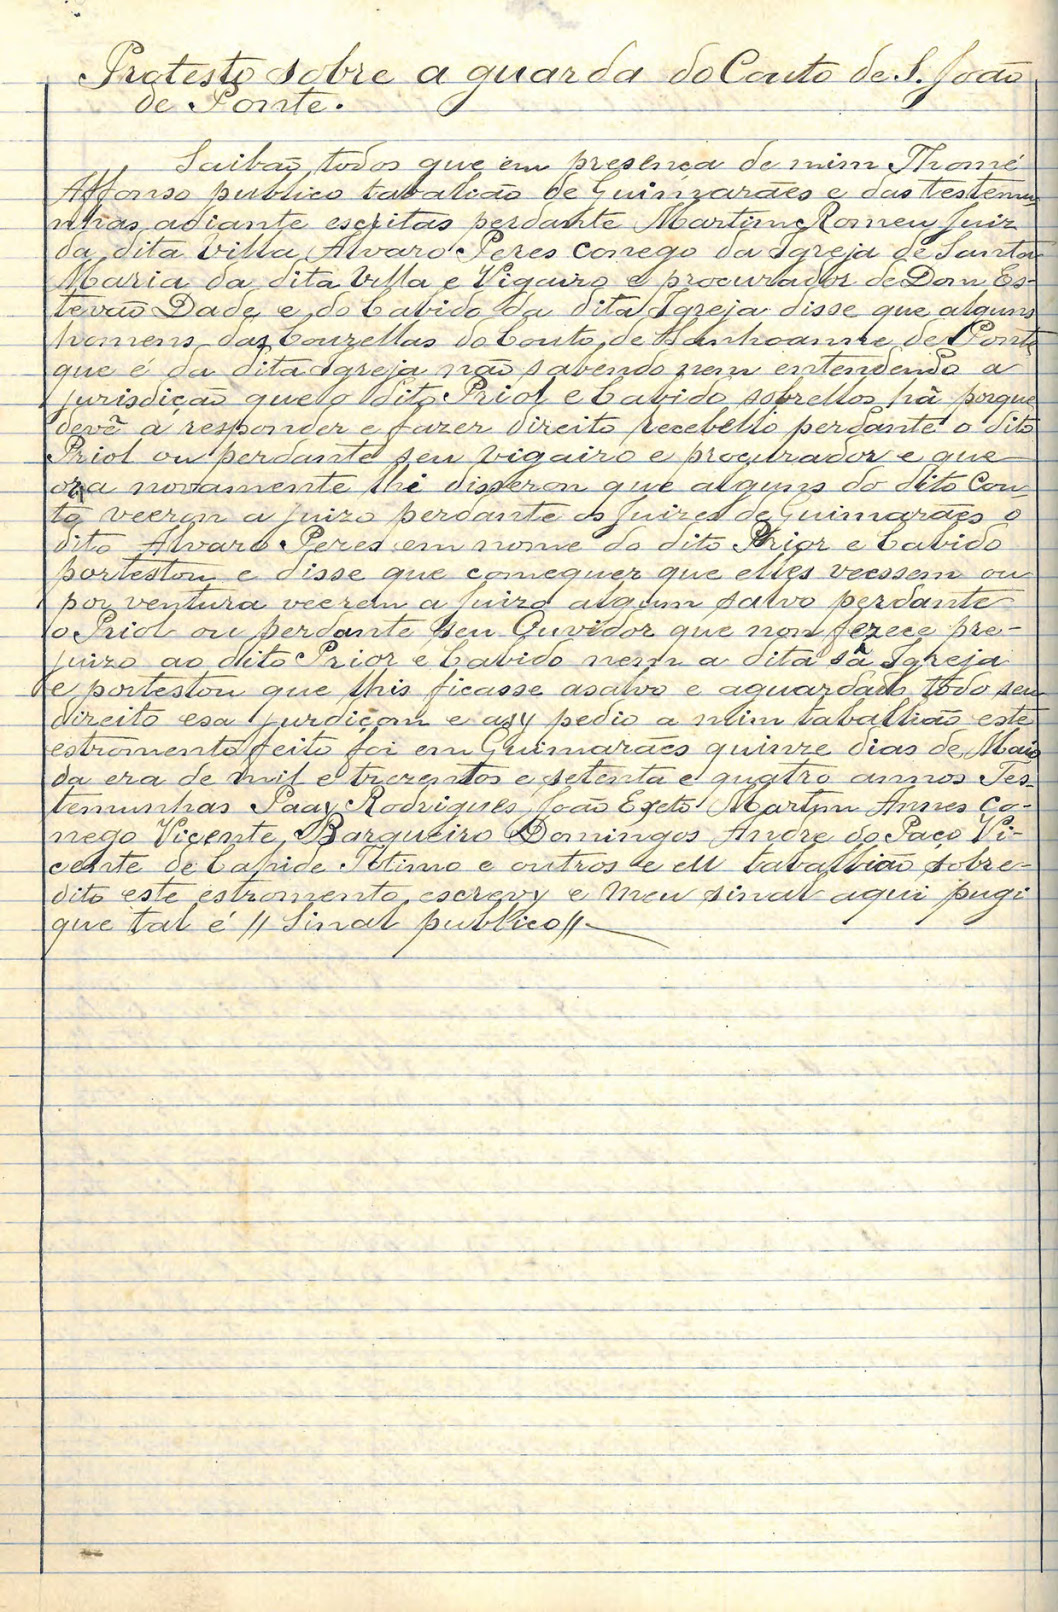 Protesto sobre a guarda do Couto de S. João
de Ponte.
Saibaõ todos que em presença de mim Thomé
Affonso publico tabaliaõ de Guimarães e das testemu-
nhas adiante escritas perdante Martim Romeu Juiz
da dita villa Alvaro Peres Conego da Igreja de Santa
Maria da dita Villa e Vigairo e procurador de Dom Es-
tevaõ Dade e do Cabido da dita Igreja disse que alguns
homens das Couzellas do Couto de Sanhoanne de Ponte
que é da dita Igreja naõ sabendo nem entendendo a
jurisdiçaõ que o dito Priol e Cabido sobrellos hã porque
devẽ a responder e fazer direito recebello perdante o dito
Priol ou perdante seu vigairo e procurador e que
ora novamente lhi disseron que alguns do dito Cou-
to veeron a juizo perdante os Juizes de Guimarães o
dito Alvaro Peres em nome do dito Prior e Cabido
portestou e disse que comequer que elles veessem ou
por ventura veeram a juizo algum salvo perdante
o Priol ou perdante seu Ouvidor que non fezece pre-
juizo ao dito Prior e Cabido nem a dita sâ Igreja
e portestou que lhis ficasse asalvo e aguardado todo seu
direito e sa jurdiçom e asy pedio a mim taballiaõ este
estromento feito foi em Guimarães quinze dias de Maio
da era de mil e trezentos e setenta e quatro annos Tes-
temunhas Paay Rodrigues João Martim Annes Co-
nego Vicente Barqueiro Domingos Andre do Paço Vi-
cente de e outros e eu taballiaõ sobre-
dito este estromento escrevy e meu sinal aqui pugi
que tal é // Sinal publico //